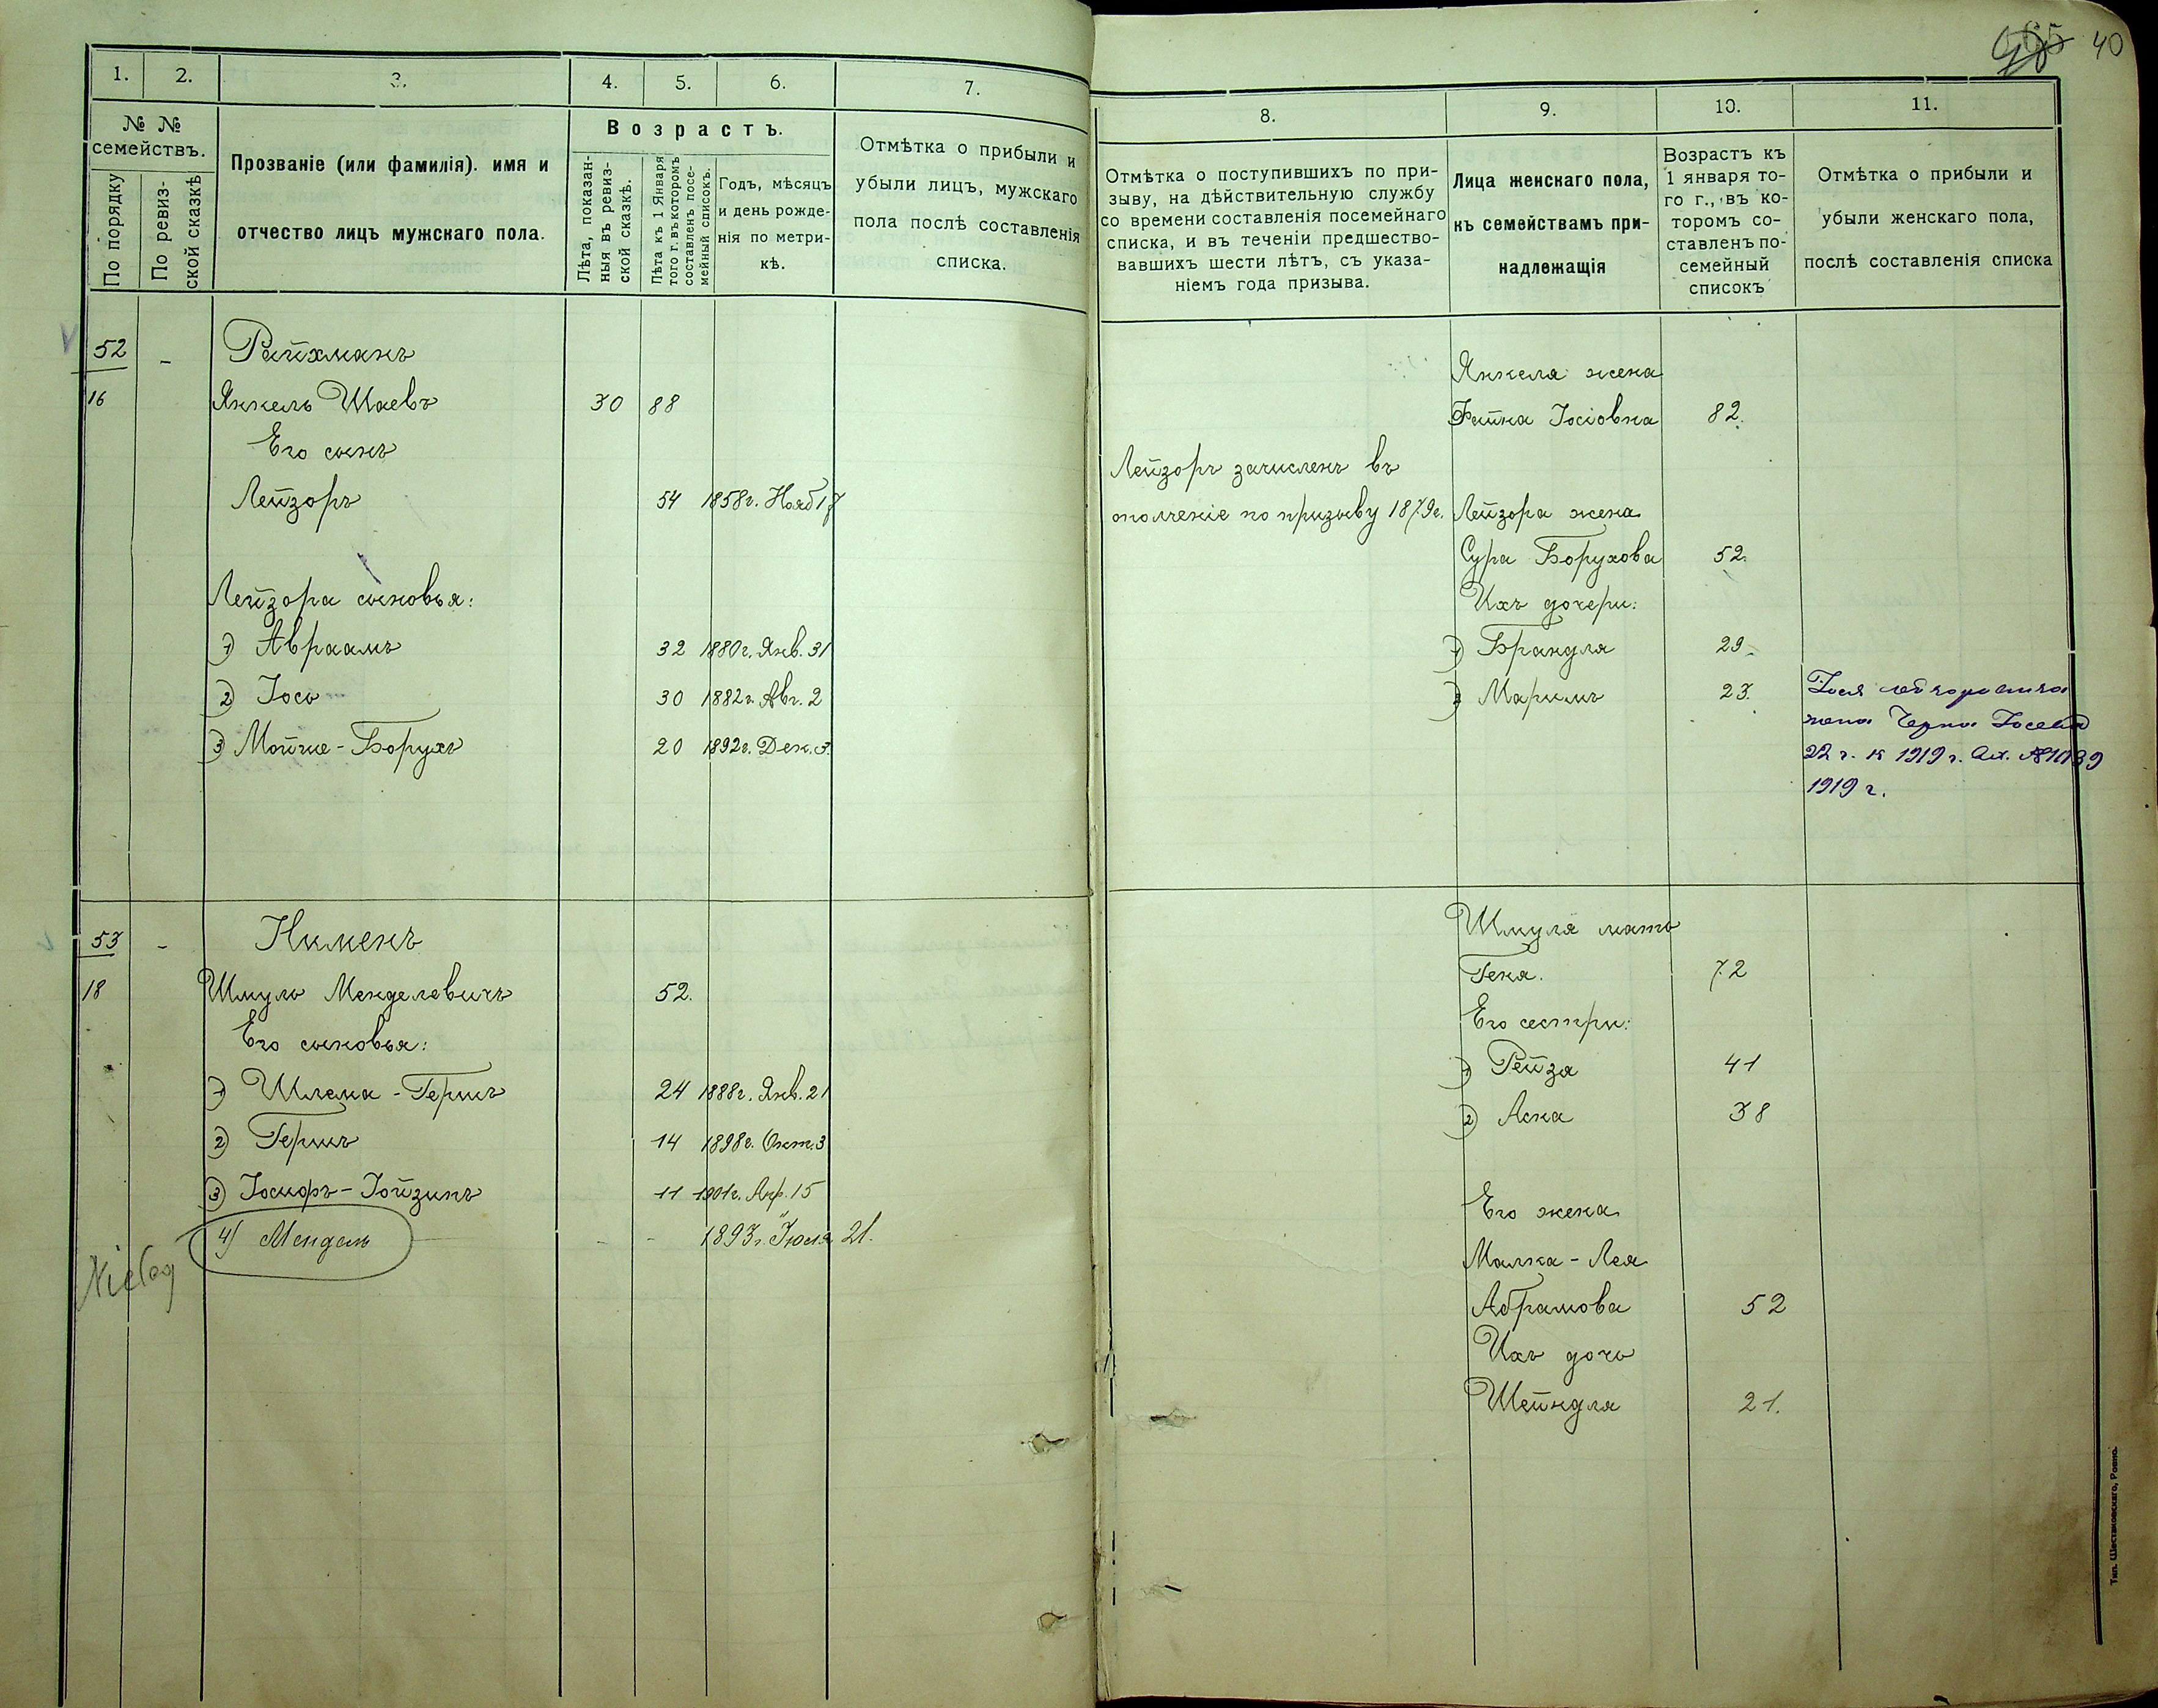 40
1. 2. 3. 4. 5. 6. 7.
№ №
семействъ.
По порядку
По ревиз-
ской сказкѣ
Прозваніе (или фамилія). имя и
отчество лицъ мужскаго пола.
Возрастъ.
Лѣта, показан-
ныя въ ревиз-
ской сказкѣ.
Лѣта къ 1 Января
того г. въ которомъ
составленъ посе-
мейный списокъ.
Годъ, мѣсяцъ
и день рожде-
нія по метри-
кѣ.
Отмѣтка о прибыли и
убыли лицъ, мужскаго
пола послѣ составленія
списка.
52 - Райхманъ
16 Янкель Шаевъ 30 88
Его сынъ
Лейзоръ 54 1858г. Нояб 17
Лейзора сыновья:
1) Авраамъ 32 1880г. Янв. 31
2) Іось 30 1882г. Авг. 2
3) Мойше-Борухъ 20 1892г. Дек. 3.
53 - Нименъ
18 Шмуль Менделевичъ 52.
Его сыновья:
1) Шлема-Гершъ 24 1888г. Янв. 21
2) Гершъ 14 1898г. Окт. 3
3) Іосифъ-Іойзипъ 11 1901г. Апр. 15
4) Мендель - - 1893г. Іюля 21.
8. 9. 10. 11.
Отмѣтка о поступившихъ по при-
зыву, на дѣйствительную службу
со времени составленія посемейнаго
списка, и въ теченіи предшество-
вавшихъ шести лѣтъ, съ указа-
ніемъ года призыва.
Лица женскаго пола,
къ семействамъ при-
надлежащія
Возрастъ къ
1 января то-
го г., въ ко-
торомъ со-
ставленъ по-
семейный
списокъ
Отмѣтка о прибыли и
убыли женскаго пола,
послѣ составленія списка
Янкеля жена
Фейга Іосіовна 82.
Лейзоръ зачисленъ въ
ополченіе по призыву 1879г. Лейзора жена
Сура Борухова 52.
Ихъ дочери:
1) Брандля 29.
2) Маримъ 23.
жена Черна
22 г. к 1919 г.
1919 г.
Шмуля мать
Геня. 72
Его сестры:
1) Рейза 41
2) Аска 38
Его жена
Малка-Лея
Абрамова 52
Ихъ дочь
Шейндля 21.
Тип. Шестаковскаго, Ровно.